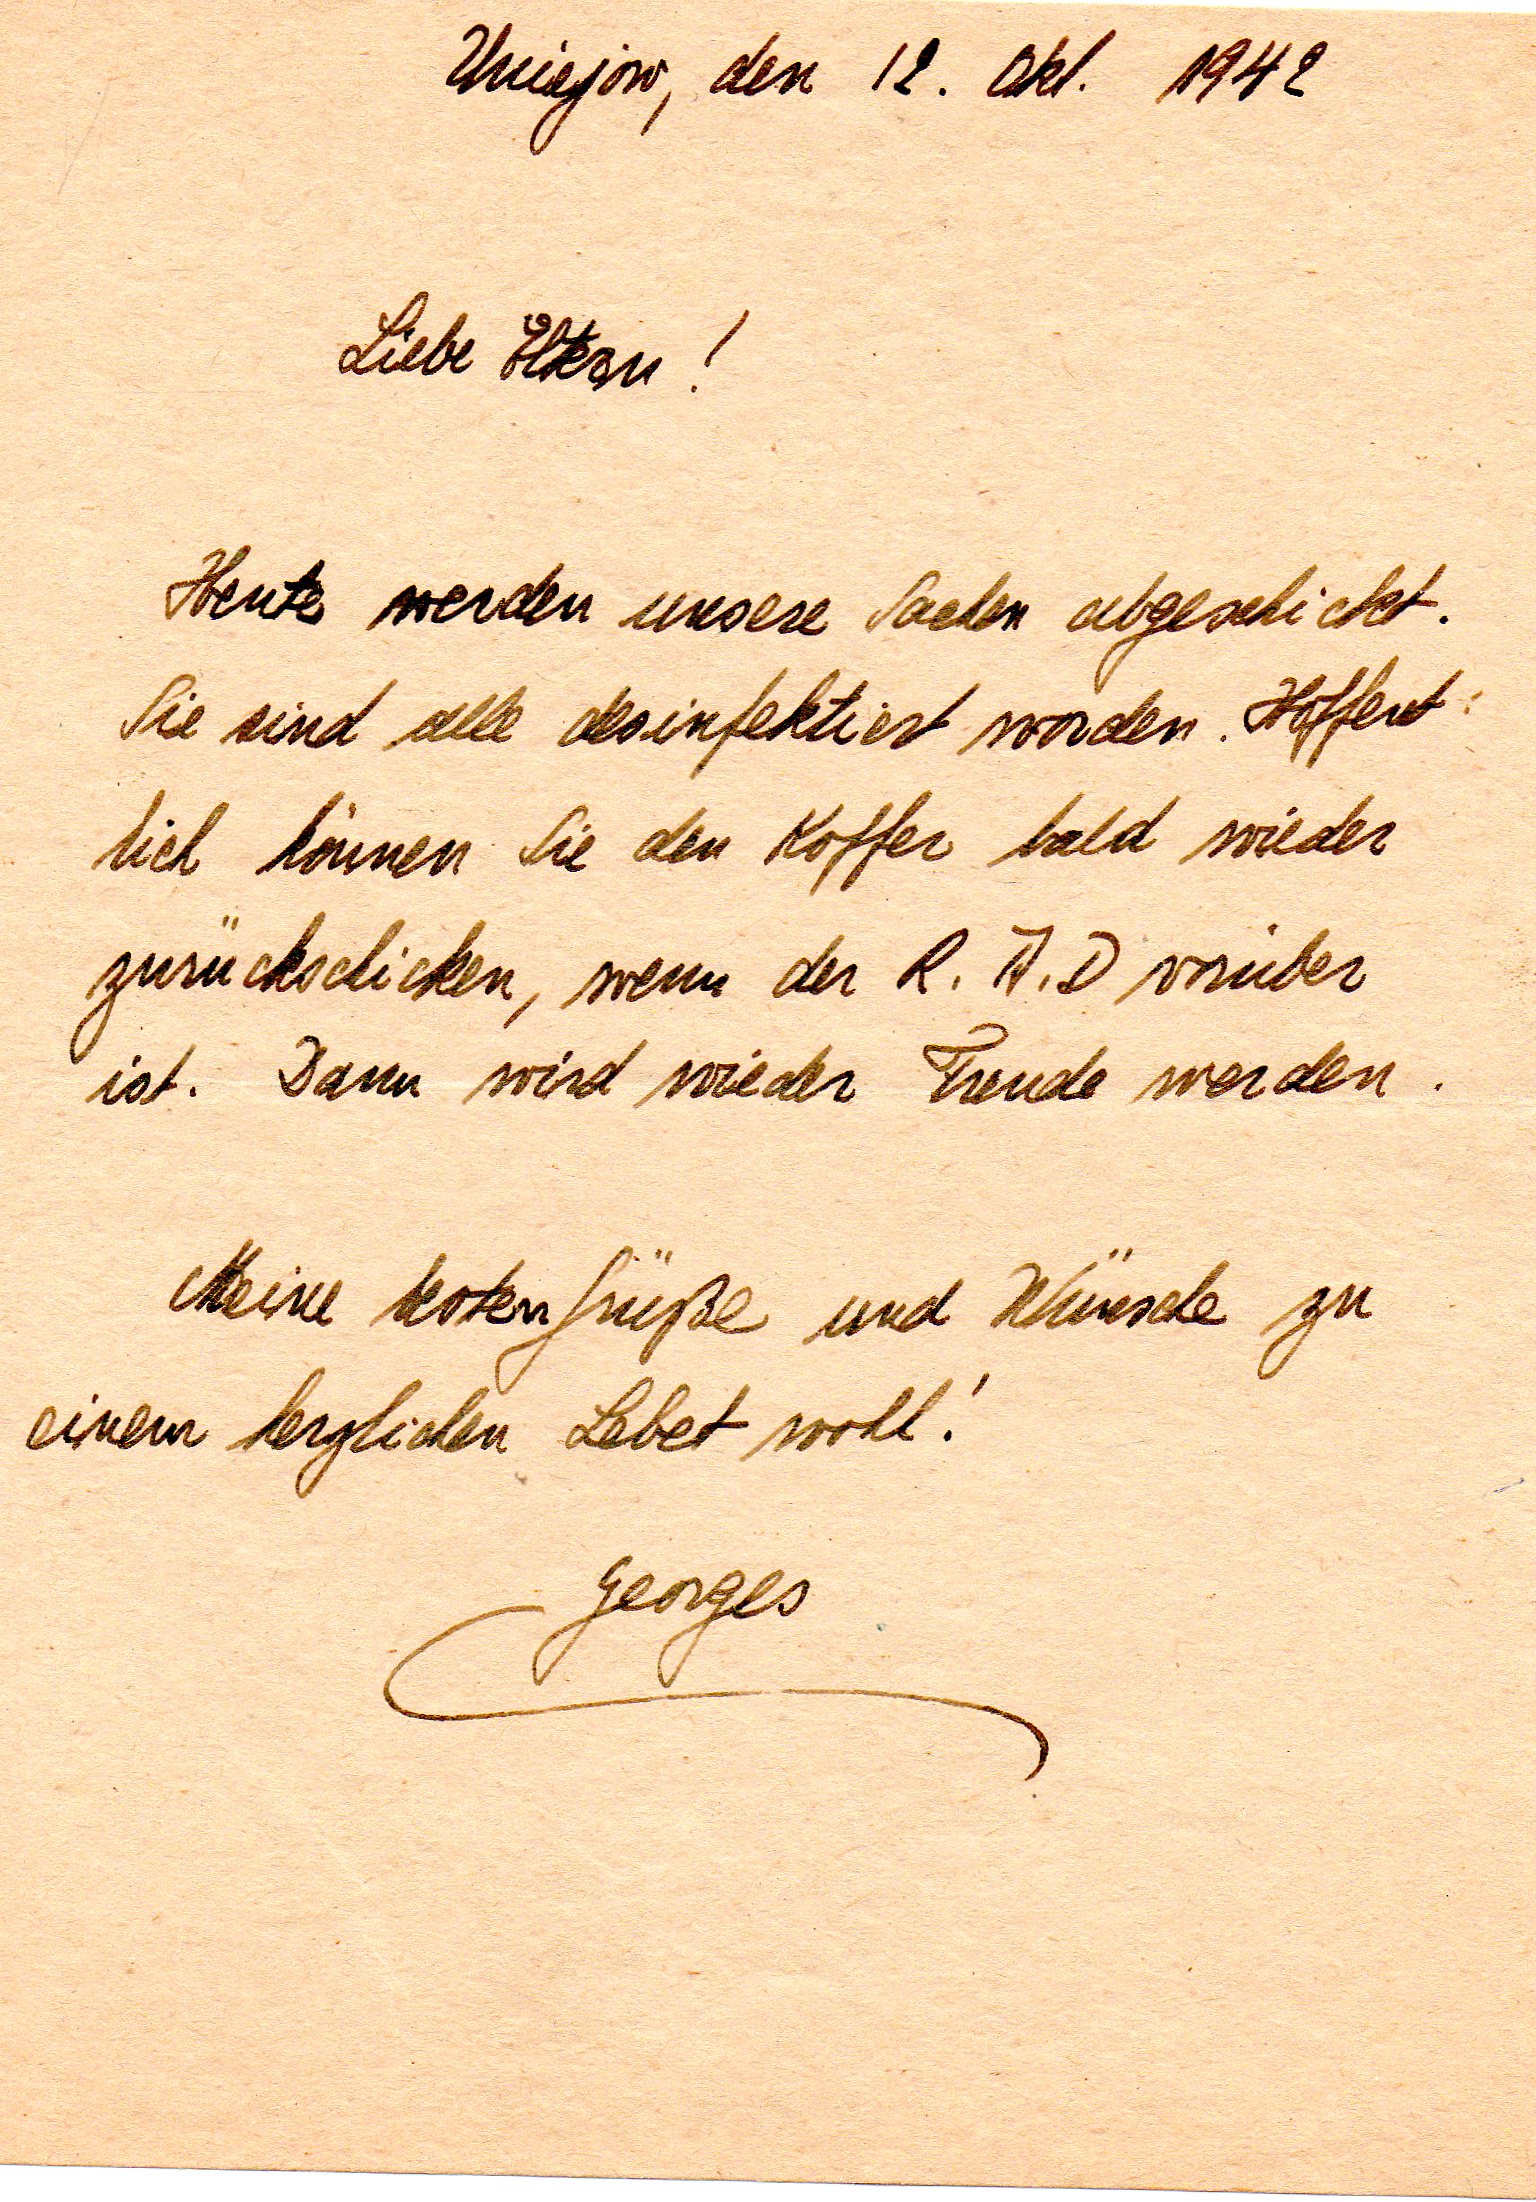 Uniejow, den 12. Okt. 1942
Liebe Eltern !
Heute werden unsere Sachen abgeschickt.
Sie sind alle desinfektiert worden. Hoffent:
lich können Sie den Koffer bald wieder
zurückschicken, wenn der R. A. D vorüber
ist. Dann wird wieder Freude werden .
Meine besten Grüße und Wünsche zu
einem herzlichen Lebet wohl !
Georges